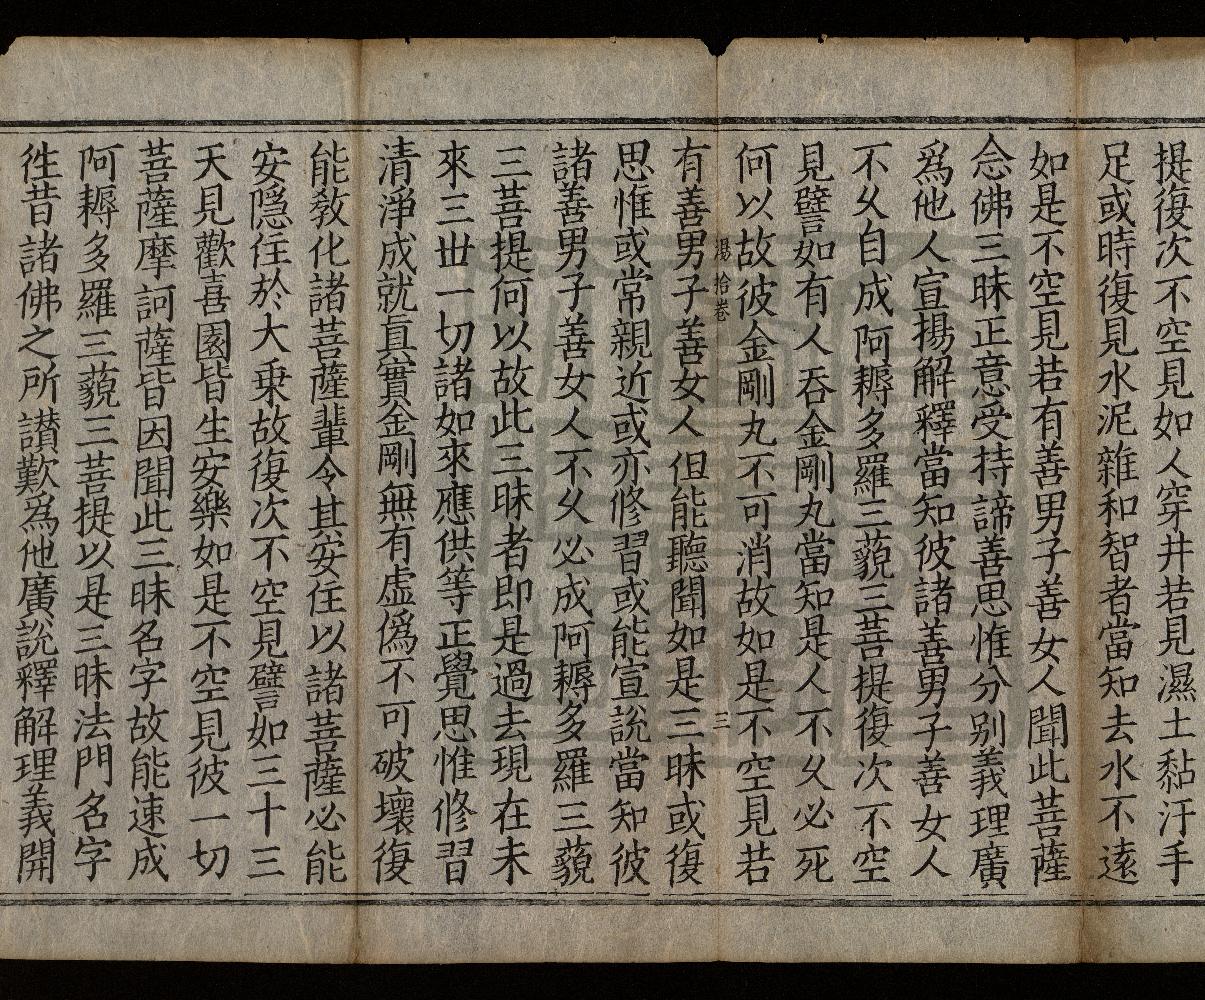 提復次不空見如人穿井若見濕土黏汙手
足或時復見水泥雜和智者當知去水不遠
如是不空見若有善男子善女人聞此菩薩
念佛三昧正意受持諦善思惟分别義理廣
爲他人宣揚解釋當知彼諸善男子善女人
不久自成阿耨多羅三藐三菩提復次不空
見譬如有人吞金剛丸當知是人不久必死
何以故彼金剛丸不可消故如是不空見若
拾卷 三
有善男子善女人但能聽聞如是三昧或復
思惟或常親近或亦修習或能宣說當知彼
諸善男子善女人不久必成阿耨多羅三藐
三菩提何以故此三昧者即是過去現在未
來三世一切諸如來應供等正覺思惟修習
清淨成就眞實金剛無有虛僞不可破壞復
能教化諸菩薩輩令其安住以諸菩薩必能
安隱住於大乗故復次不空見譬如三十三
天見歡喜園皆生安樂如是不空見彼一切
菩薩摩訶薩皆因聞此三昧名字故能速成
阿耨多羅三藐三菩提以是三昧法門名字
徃昔諸佛之所讃歎爲他廣說釋解理義開